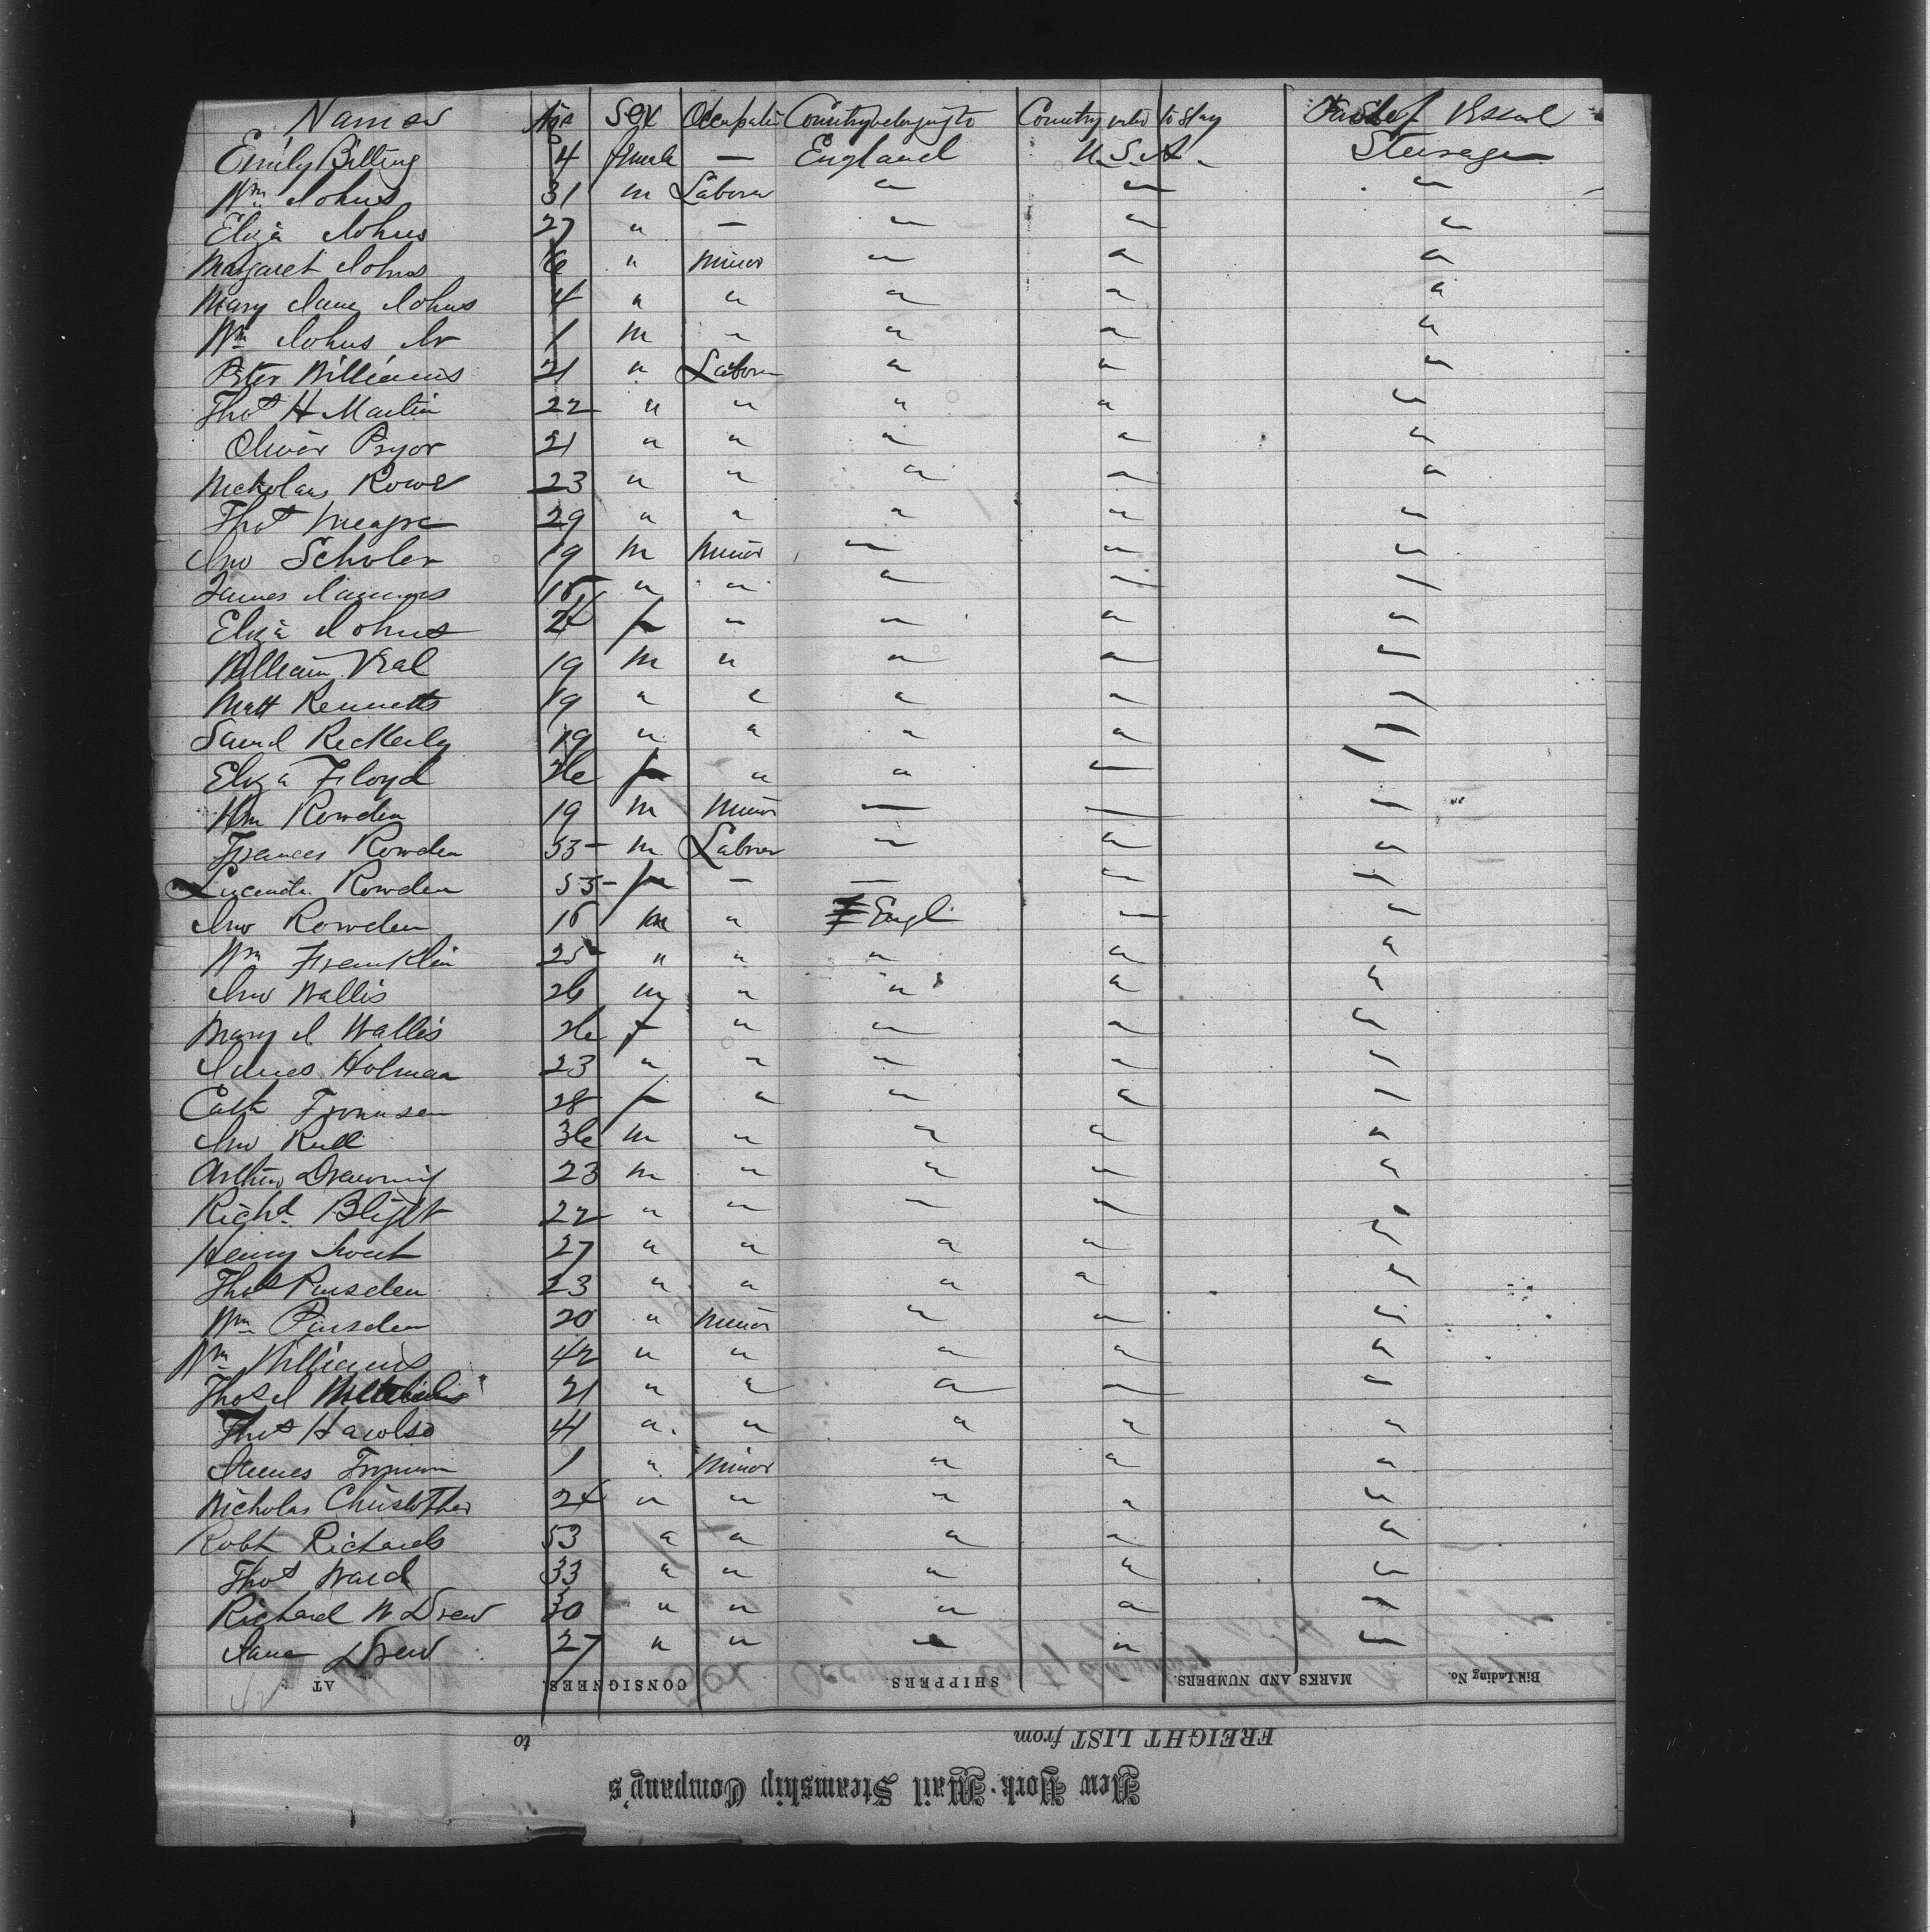 Names Age Sex Occupation Country belonging to Country intd to Stay Part of Vessel
Emily Billing 4 female — England U.S.A. Steerage
Wm Johns 31 m Laborer " " "
Eliza Johns 27 " — " " "
Margaret Johns 6 " minor " " "
Mary Jane Johns 4 " " " " "
Wm Johns Jr 1 m " " " "
Peter Williams 21 " Labor " " "
Thos H Martin 22 " " " " "
Oliver Pryor 21 " " " " "
Nicholas Rowe 23 " " " " "
Thos 29 " " " " "
Jno Scholer 19 m minor " " "
James 15 " " " " "
Eliza Johns 24 f " " " "
William Veal 19 m " " " "
Matt Kennetts 19 " " " " "
Saml 19 " " " " "
Eliza Floyd 26 f " " " "
Wm Rowden 19 m minor — — —
Frances Rowden 53 m Labrer " " "
Lucenda Rowden 53 f — — " "
Jno Rowden 16 m " Engl " "
Wm Franklin 25 " " " " "
Jno Wallis 26 m " " " "
Mary J Wallis 26 f " " " "
James Holman 23 " " " " "
Cath 28 f " " " "
Jno Rull 36 m " " " "
Arthur 23 m " " " "
Richd Blight 22 " " " " "
Henry 27 " " " " "
Thos Pinsden 23 " " " " "
Wm Pinsden 20 " minor " " "
Wm Williams 42 " " " " "
Thos J 21 " " " " "
Thos 41 " " " " "
James 1 " minor " " "
Nicholas Christopher 24 " " " " "
Robt Richards 53 " " " " "
Thos Ward 33 " " " " "
Richard W Drew 30 " " " " "
Jane Drew 27 " " " " "
Bill Lading No. MARKS AND NUMBERS. SHIPPERS. CONSIGNEES. AT
FREIGHT LIST from to
New York Mail Steamship Company's